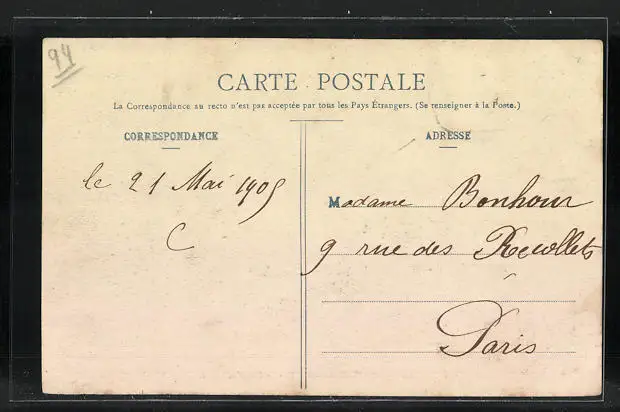 94
CARTE POSTALE
La Correspondance au recto n'est pas acceptée par tous les Pays Étrangers. (Se renseigner à la Poste.)
CORRESPONDANCE
le 21 Mai 1905
C
ADRESSE
Madame Bonhour
9 rue des Recollets
Paris